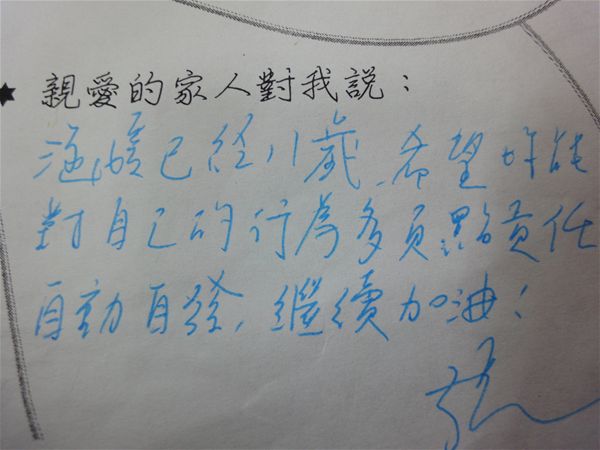 ★ 親愛的家人對我說：
涵已經八歲，希望妳能
對自己的行為多負點責任
自動自發，繼續加油！